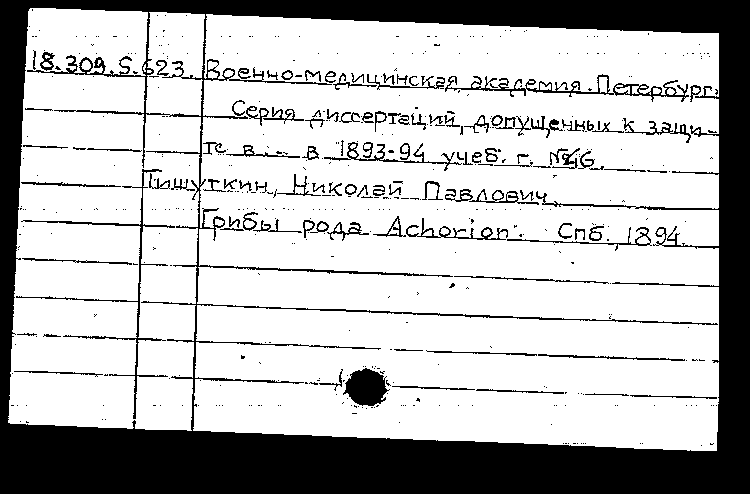 18.309.S.623. Военно-медицинская академия. Петербург.
Серия диссертаций, допущенных к защи-
те в ... в 1893-94 учеб. г. №46.
Тишуткин, Николай Павлович.
Грибы рода Achorion. Спб., 1894.